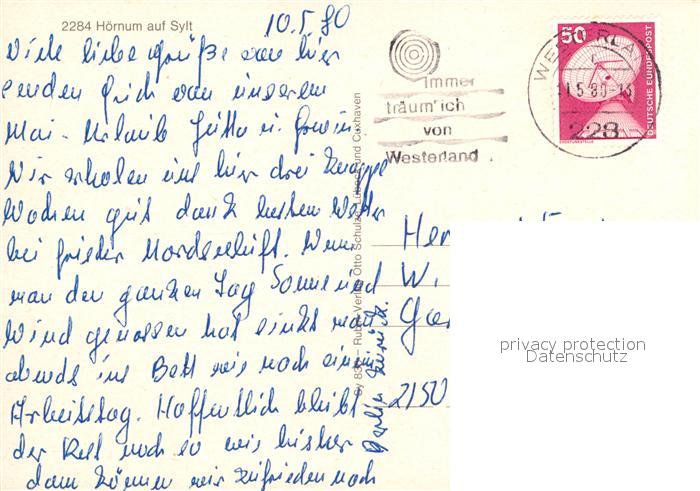 2284 Hörnum auf Sylt
10.5.80
Viele liebe Grüße von hier
senden Euch von unserem
Mai-Urlaub Jutta u. Erwin
Wir erholen uns hier drei knappe
Wochen gut dank bestem Wetter
bei frischer Nordseeluft. Wenn
man den ganzen Tag Sonne und
Wind genossen hat sinkt man
abends ins Bett wie nach einem
Arbeitstag. Hoffentlich bleibt
der Rest noch so wie bisher
dann können wir zufrieden nach
Berlin zurück.
Immer
träum' ich
von
Westerland
WESTERLAND
228
50
DEUTSCHE BUNDESPOST
ERDEFUNKSTELLE
Verlag Otto Schulze, Lübeck und Cuxhaven
Her
W.
2150
privacy protection
Datenschutz